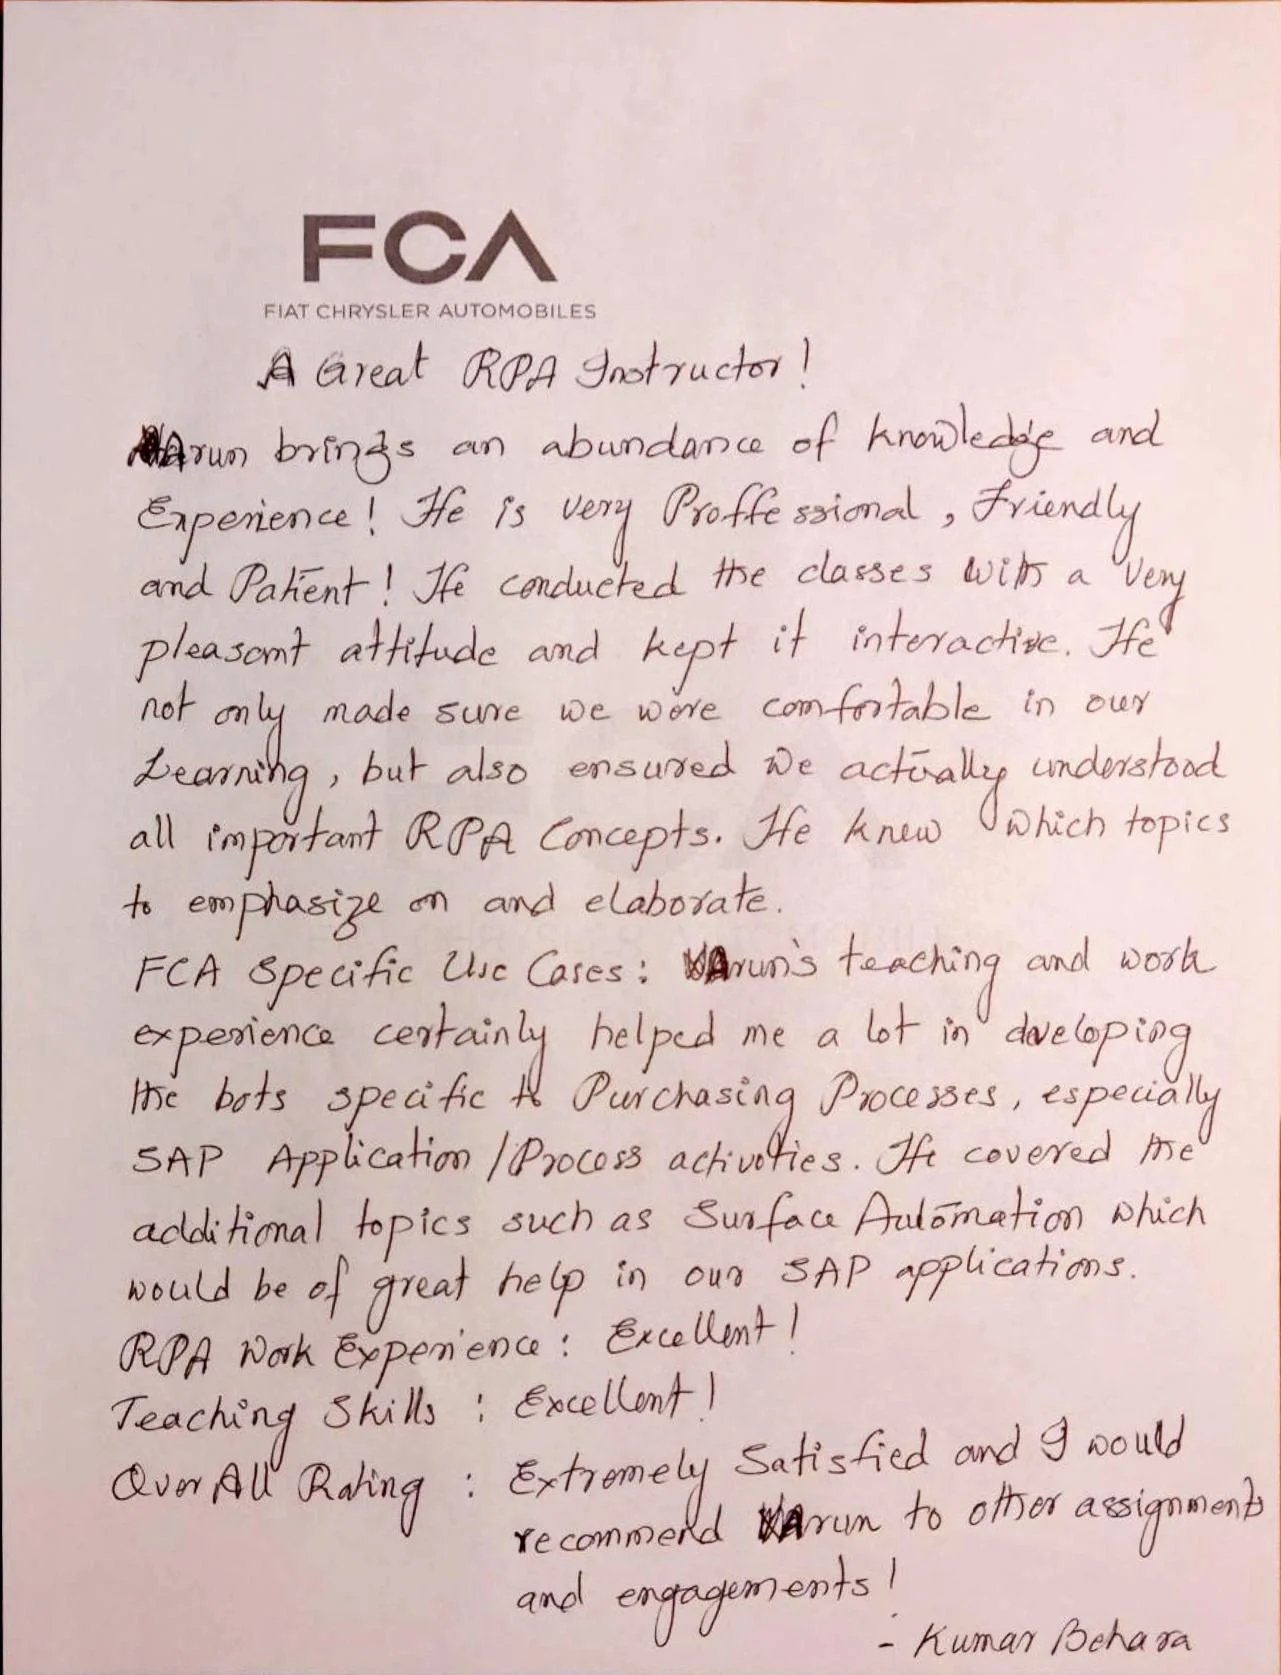 FCA
FIAT CHRYSLER AUTOMOBILES
A Great RPA Instructor!
Arun brings an abundance of knowledge and
Experience! He is very Proffessional, Friendly
and Patient! He conducted the classes with a very
pleasant attitude and kept it interactive. He
not only made sure we were comfortable in our
Learning, but also ensured we actually understood
all important RPA Concepts. He knew which topics
to emphasize on and elaborate.
FCA Specific Use Cases: Arun's teaching and work
experience certainly helped me a lot in developing
the bots specific to Purchasing Processes, especially
SAP Application/Process activities. He covered the
additional topics such as Surface Automation which
would be of great help in our SAP applications.
RPA Work Experience: Excellent!
Teaching Skills : Excellent!
Over All Rating : Extremely Satisfied and I would
recommend Arun to other assignments
and engagements!
- Kumar Behara